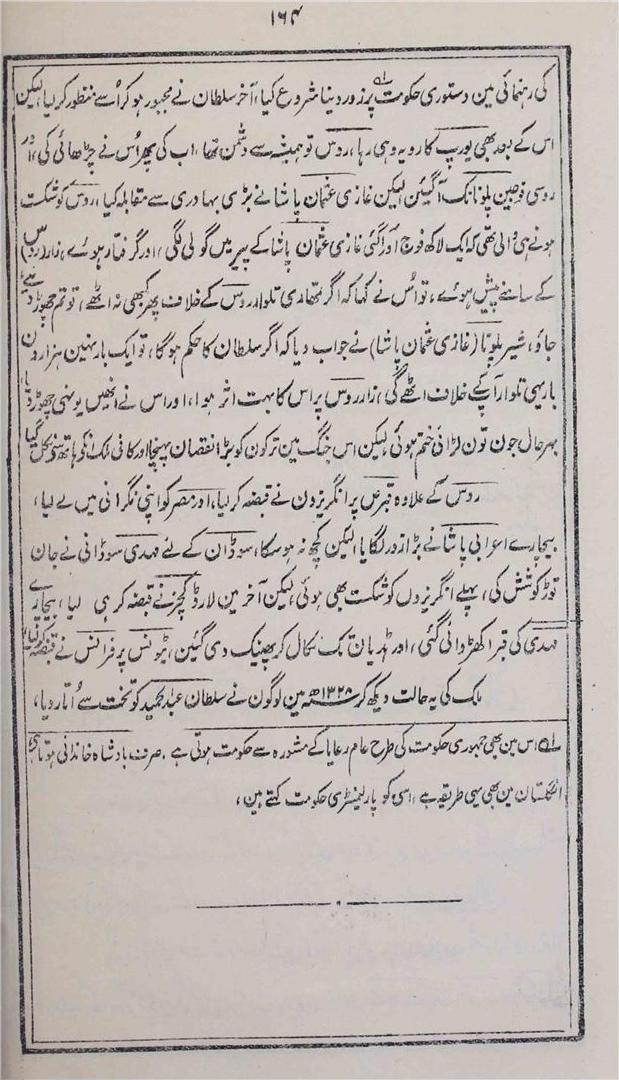 ۱۶۴
کی رہنمائی مین دستوری حکومت لہ پر زور دینا شروع کیا، آخر سلطان نے مجبور ہو کر اُسے منظور کر لیا، لیکن
اس کے بعد بھی یورپ کا رویہ وہی رہا، روس تو ہمیشہ سے دشمن تھا، اب کی پھر اُس نے چڑھائی کی، اور
روسی فوجین پلونا تک آگئین لیکن غازی عثمان پاشا نے بڑی بہادری سے مقابلہ کیا، روس کو شکست
ہونے ہی والی تھی کہ ایک لاکھ فوج اور آگئی غازی عثمان پاشا کے پیر میں گولی لگی، اور گرفتار ہوئے، زار (روس)
کے سامنے پیش ہوئے، تو اُس نے کہا کہ اگر تمھاری تلوار روس کے خلاف پھر کبھی نہ اٹھے، تو تم چھوڑ دیے
جاؤ، شیر پلونا (غازی عثمان پاشا) نے جواب دیا کہ اگر سلطان کا حکم ہوگا، تو ایک بار نہین ہزارون
بار یہی تلوار آپ کے خلاف اٹھے گی، زار روس پر اس کا بہت اثر ہوا، اور اس نے انھیں یونہی چھوڑ دیا
بہر حال جون تون لڑائی ختم ہوئی، لیکن اس جنگ مین ترکون کو بڑا نقصان پہنچا اور کافی ملک انکے ہاتھ سے نکل گیا
روس کے علاوہ قبرص پر انگریزون نے قبضہ کر لیا، اور مصر کو اپنی نگرانی میں لے لیا،
بیچارے اعرابی پاشا نے بڑا زور لگایا لیکن کچھ نہ ہو سکا، سوڈان کے لئے مہدی سوڈانی نے جان
توڑ کوشش کی، پہلے انگریزوں کو شکست بھی ہوئی، لیکن آخر مین لارڈ کچنر نے قبضہ کر ہی لیا، بیچارے
مہدی کی قبر اکھڑوائی گئی، اور ہڈیان تک نکال کر پھینک دی گئین، ٹیونس پر فرانس نے قبضہ کر لیا،
ملک کی یہ حالت دیکھ کر ۱۳۲۸ھ مین لوگون نے سلطان عبدالحمید کو تخت سے اُتار دیا،
لہ اس مین بھی جمہوری حکومت کی طرح عام رعایا کے مشورہ سے حکومت ہوتی ہے، صرف بادشاہ خاندانی ہوتا ہے
انگلستان مین بھی یہی طریقہ ہے، اسی کو پارلیمنٹری حکومت کہتے ہین،